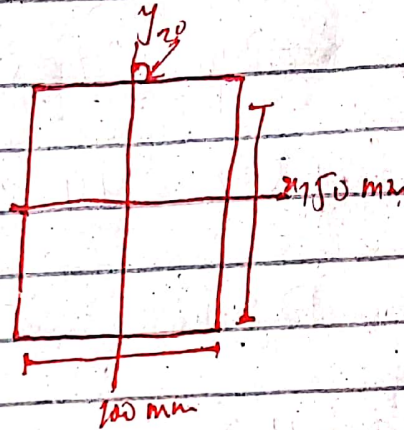 y
20
x 150 mm
100 mm